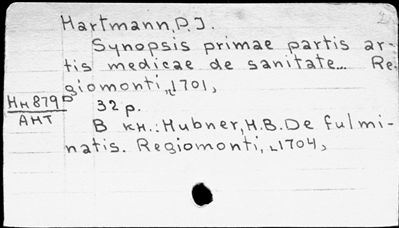 Hartmann, P. J.
Synopsis primae partis ar-
tis medicae de sanitate... Re-
giomonti, [1701,
Нн879 32 p.
АНТ
В кн.: Hubner, H. B. De fulmi-
natis. Regiomonti, [1704,